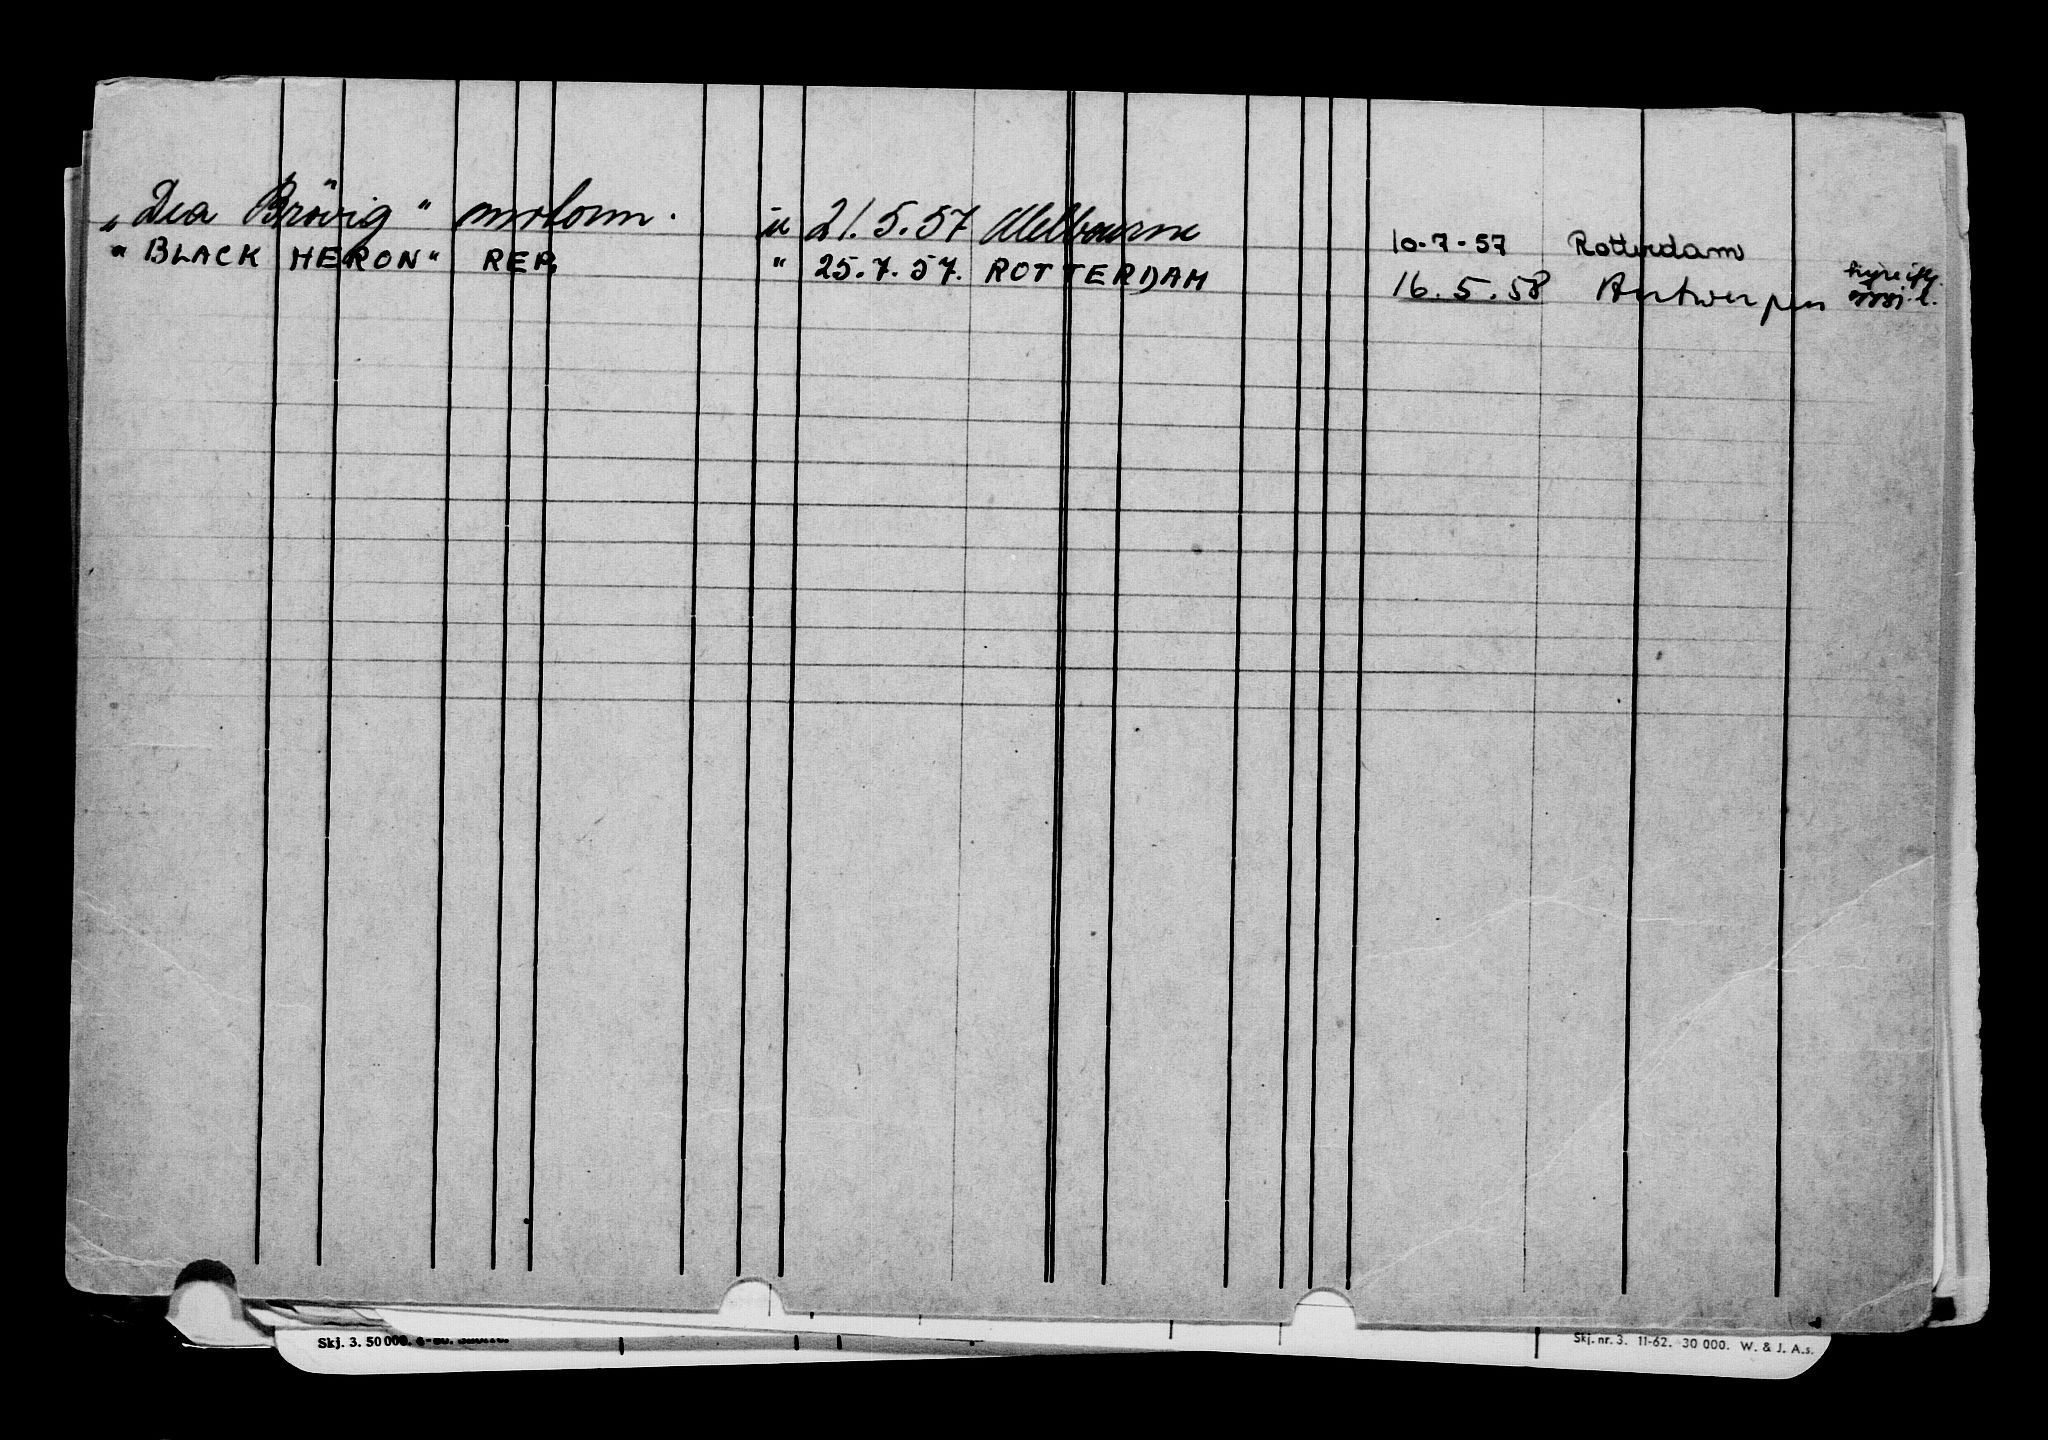 „Dea Brövig" motorm. u 21.5.57 Melbourne 10-7-57 Rotterdam
"BLACK HERON" REP. " 25.7.57. ROTTERDAM 16.5.58 Antwerpen
Skj. 3. 50 000.
Skj. nr. 3. 11-62. 30 000. W. & J. A.s.